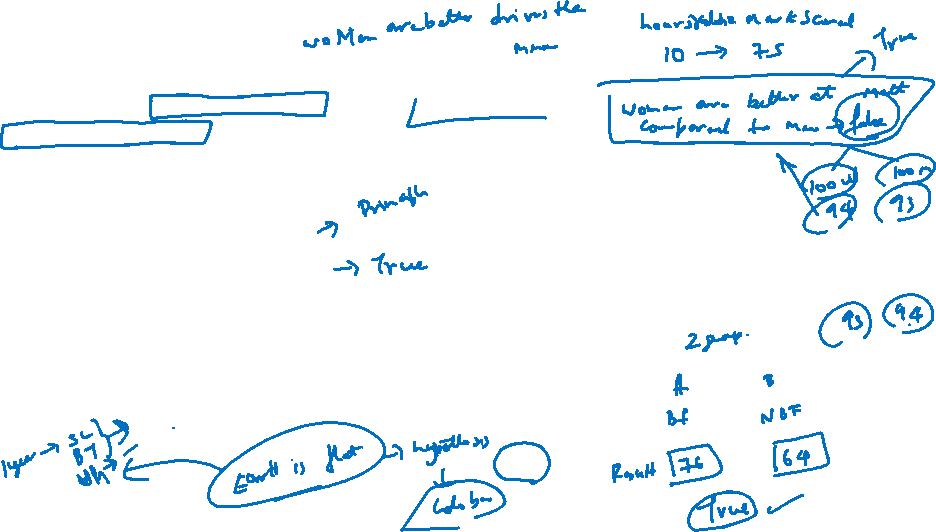 woMen are better drives the
men
hours marks scored
10 → 75
True
women are better at Matt
compared to Men → false
100 w 100 m
94 93
→
→ True
93 94
2 group.
A B
BF NBF
Result 76 64
True ✓
1 year →
Earth is flat → hypothesis